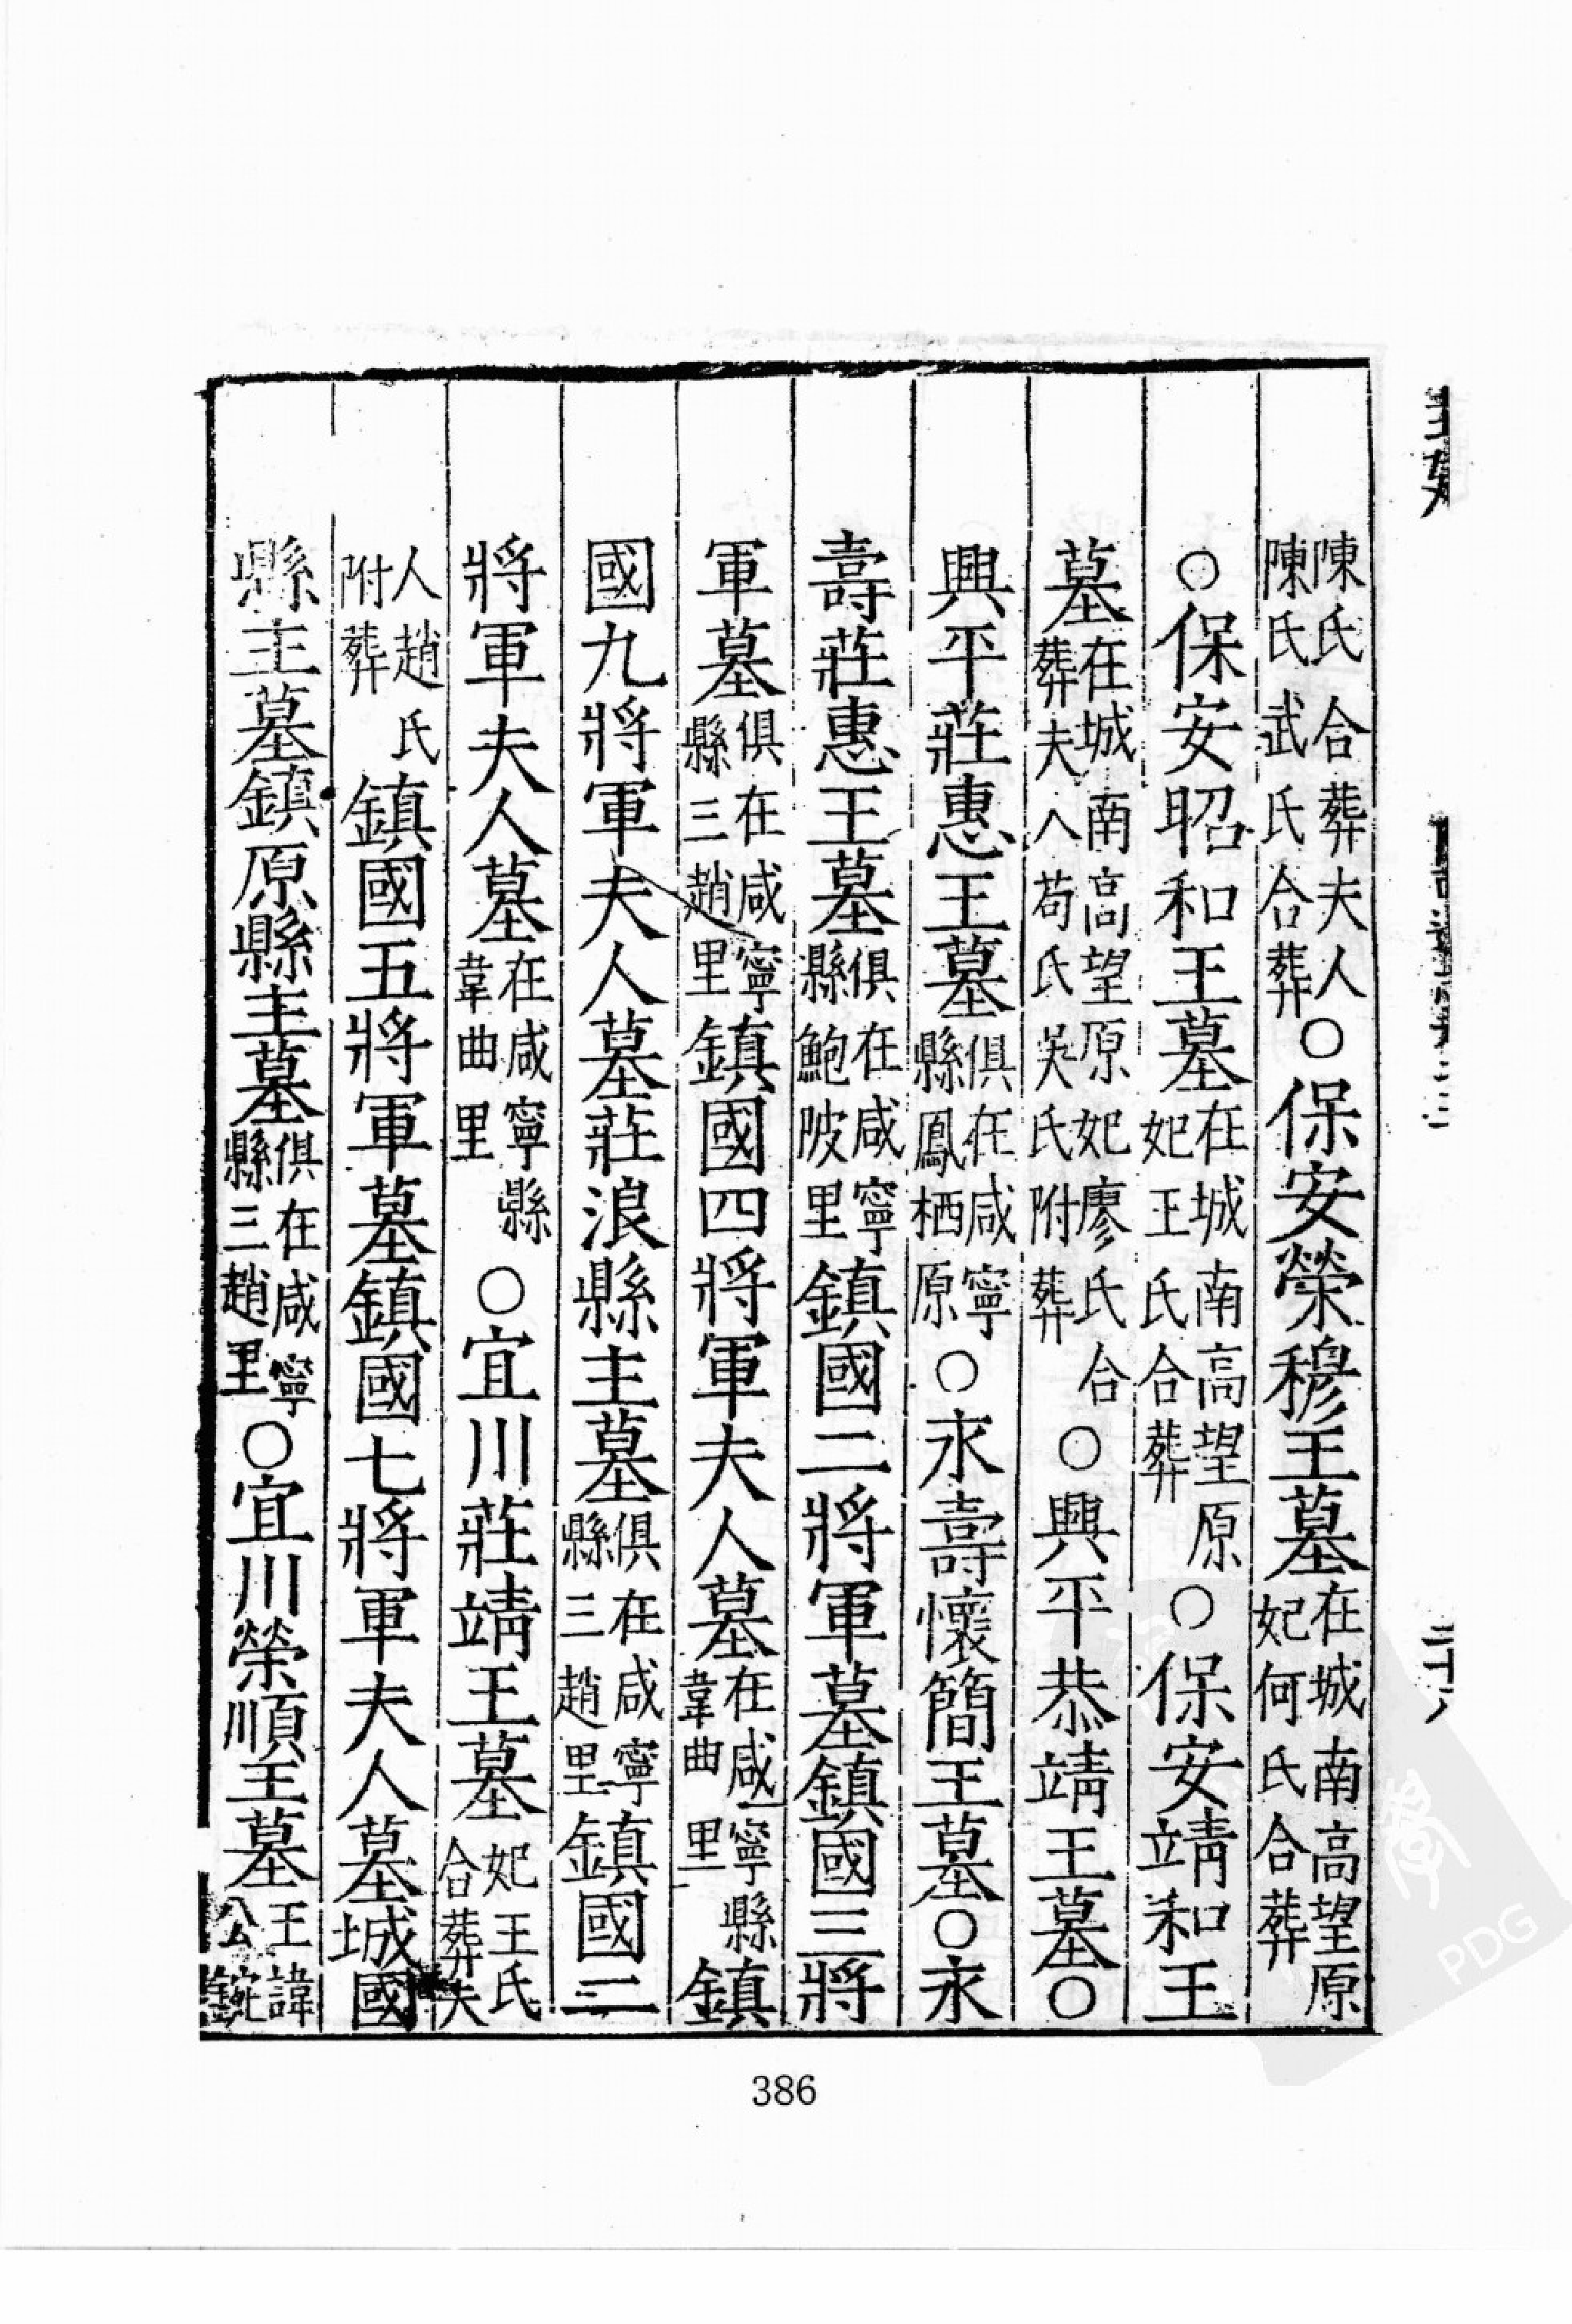 陳氏合葬夫人陳氏武氏合葬○保安榮穆王墓在城南高望原妃何氏合葬
○保安昭和王墓在城南高望原妃王氏合葬○保安靖和王
墓在城南高望原妃廖氏合葬夫人苟氏吴氏附葬○興平恭靖王墓○
興平莊惠王墓俱在咸寧縣鳳栖原○永壽懷簡王墓○永
壽莊惠王墓俱在咸寧縣鮑陂里鎮國二將軍墓鎮國三將
軍墓俱在咸寧縣三趙里鎮國四將軍夫人墓在咸寧縣韋曲里鎮
國九將軍夫人墓莊浪縣主墓俱在咸寧縣三趙里鎮國三
將軍夫人墓在咸寧縣韋曲里○宜川莊靖王墓妃王氏合葬夫
人趙氏附葬鎮國五將軍墓鎮國七將軍夫人墓城國
縣主墓鎮原縣主墓俱在咸寧縣三趙里○宜川榮順王墓王諱公鋺
386
PDG